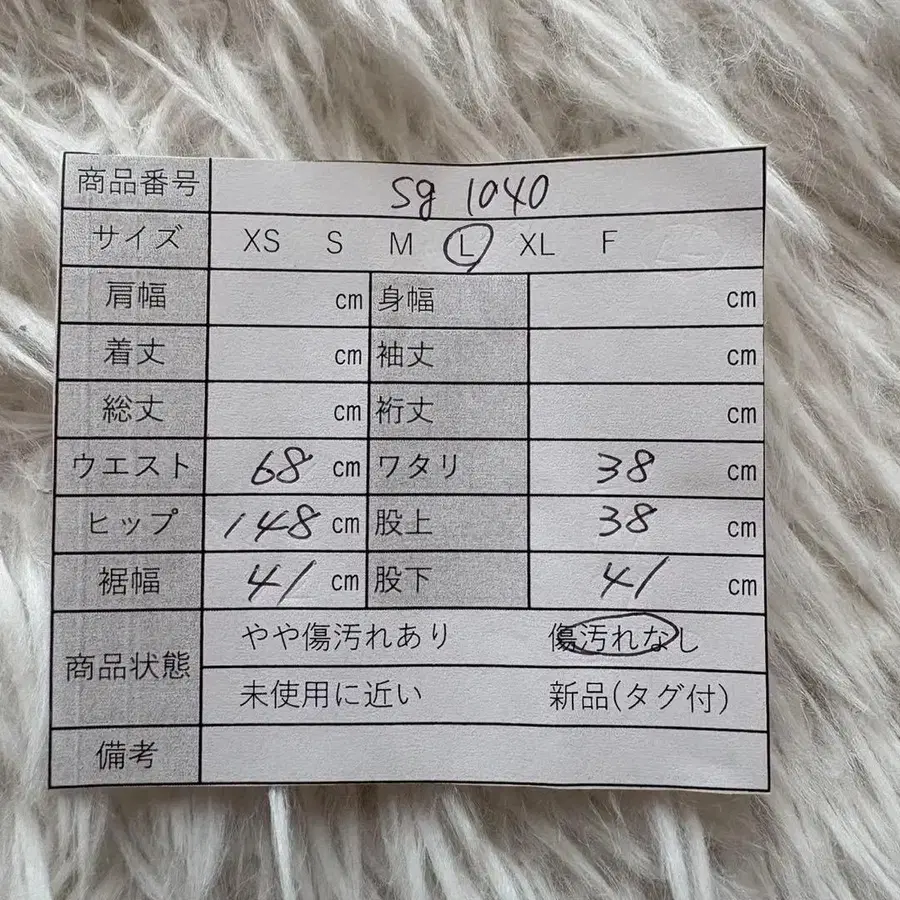 商品番号 sg 1040
サイズ XS S M L XL F
肩幅 cm 身幅 cm
着丈 cm 袖丈 cm
総丈 cm 裄丈 cm
ウエスト 68 cm ワタリ 38 cm
ヒップ 148 cm 股上 38 cm
裾幅 41 cm 股下 41 cm
商品状態 やや傷汚れあり 傷汚れなし
未使用に近い 新品(タグ付)
備考